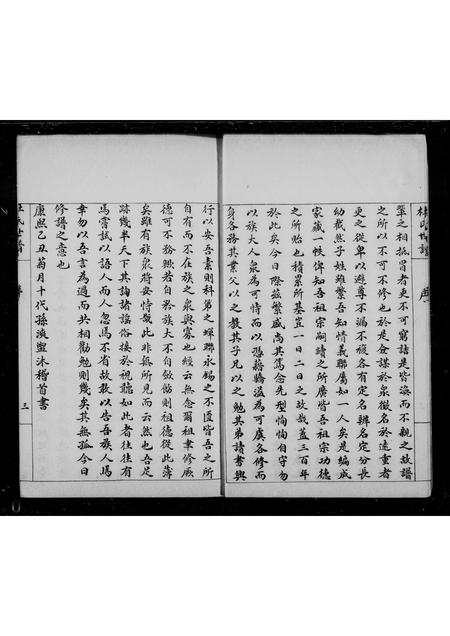 林氏世譜 序
輩之相抵冒者更不可窮詰是皆渙而不親之故譜
之所以不可不修也於是僉謀於衆徵名於遠重者
更之從卑以避尊不漏不複各有定名辨名定分長
幼截然子姓雖繁吾知情義聯屬如一人矣是編成
家藏一帙俾知吾祖宗嗣續之所廣皆吾祖宗功德
之所貽也積累所基豈一日二日之故哉蓋三百年
於此矣今日際茲繁盛尚其篤念先型恂恂自守勿
以族大人衆為可恃而以憑藉驕溢為可虞各修而
身各務其業父以之教其子兄以之勉其弟讀書與
行以安吾素則科第之蟬聯永錫之不匱皆吾之所
自有而不在族之衆與寡也經云無念爾祖聿修厥
德可不務歟若自矜族大不自斂飭則祖德從此薄
矣雖有族衆將安恃哉此非無所見而云然也吾足
跡幾半天下其詢諸謠俗接於視聽如此者往往有
焉嘗試以語人而人忽焉不省故敢以告吾族人焉
幸勿以吾言為過而共相勸勉則幾矣其無孤今日
修譜之意也
康熙乙丑菊月十代孫 盥沐稽首書
氏世譜 序 三